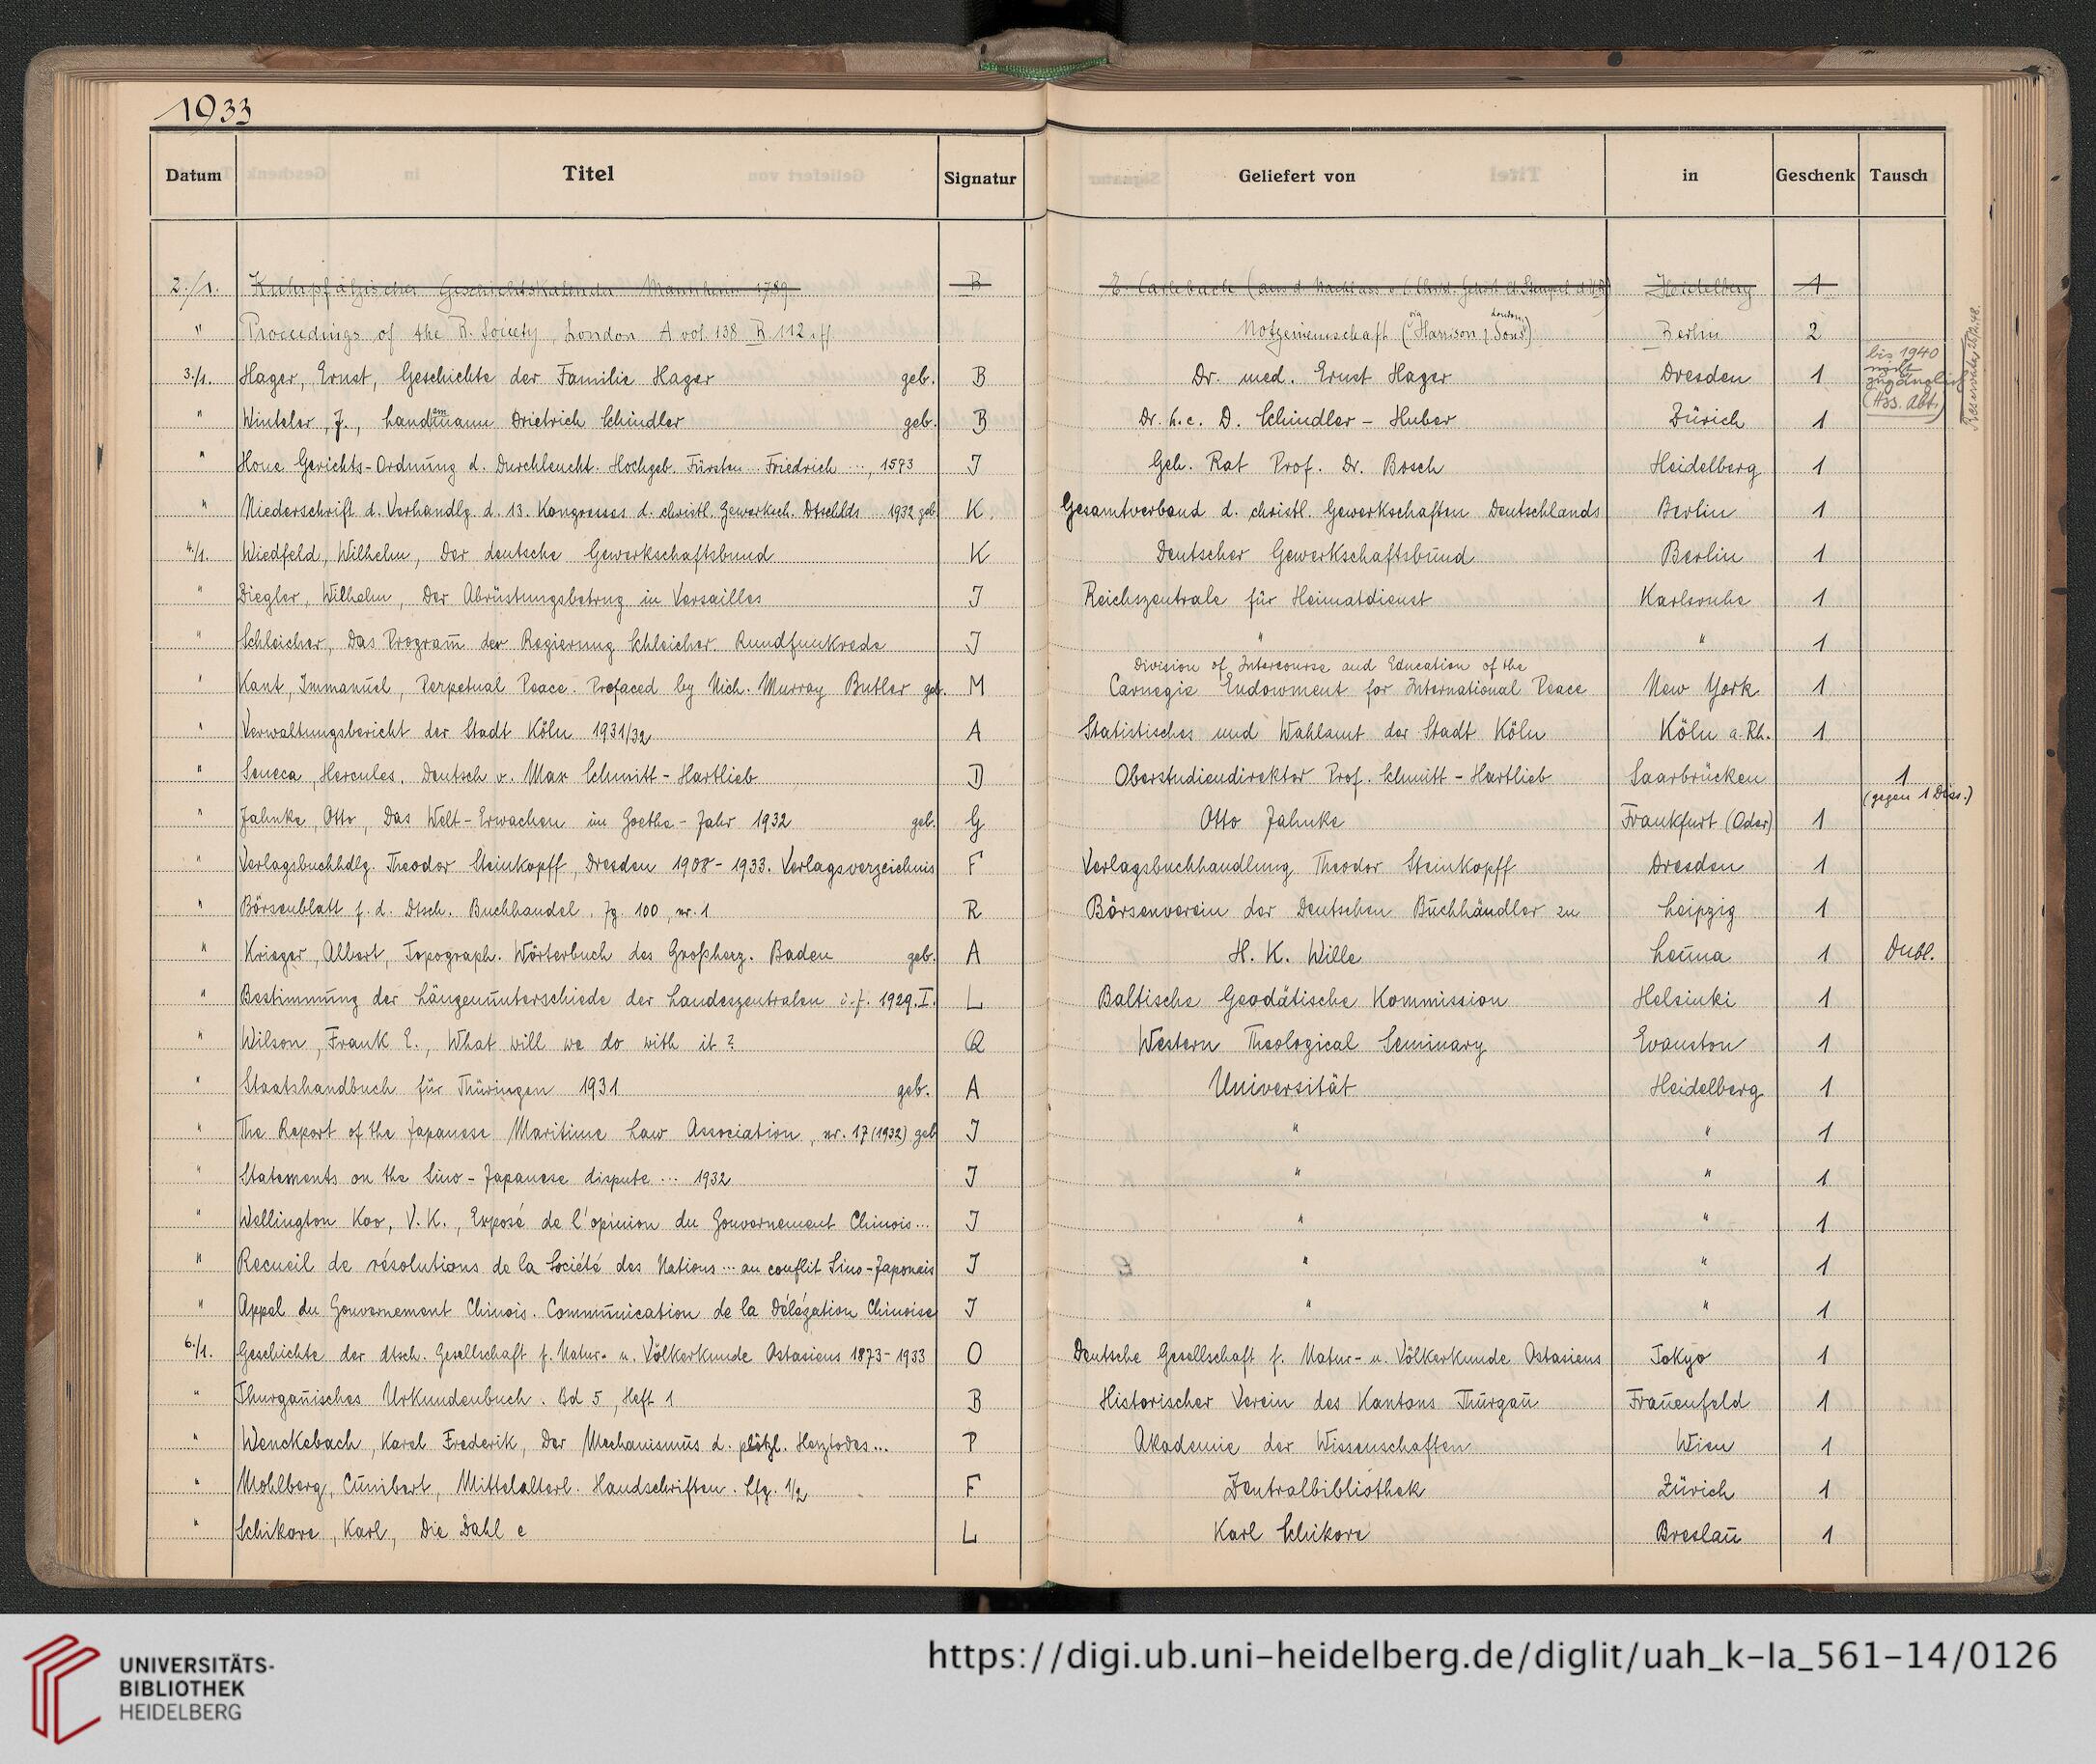 1933
Datum Titel Signatur Geliefert von in Geschenk Tausch
2./1. Kuhrpfälzischer Geschichtskalender Mannheim 1789 B E. Carlebach (aus d. Nachlass Heidelberg 1
" Proceedings of the R. Society, London A vol. 138 B 112 ff Notgemeinschaft (Harrison & Sons, London) Berlin 2
3./1. Hager, Ernst, Geschichte der Familie Hager geb. B Dr. med. Ernst Hager Dresden 1 bis 1940
nicht
zugänglich
(Hss. Abt.)
" Winteler, J., Landammann Dietrich Schindler geb. B Dr. h.c. D. Schindler - Huber Zürich 1
" Houe Gerichts-Ordnung d. Durchleucht. Hochgeb. Fürsten .. Friedrich ..., 1573 J Geh. Rat Prof. Dr. Bosch Heidelberg 1
" Niederschrift d. Verhandlg. d. 13. Kongresses d. christl. Gewerksch. Dtschlds .. 1932 geb. K. Gesamtverband d. christl. Gewerkschaften Deutschlands Berlin 1
4./1. Wiedfeld, Wilhelm, Der deutsche Gewerkschaftsbund K Deutscher Gewerkschaftsbund Berlin 1
" Ziegler, Wilhelm, Der Abrüstungsbetrug in Versailles J Reichszentrale für Heimatdienst Karlsruhe 1
" Schleicher, Das Program̅ der Regierung Schleicher. Rundfunkrede J " " 1
" Kant, Immanuel, Perpetual Peace. Prefaced by Nich. Murray Butler geb. M Division of Intercourse and Education of the
Carnegie Endowment for International Peace New York 1
" Verwaltungsbericht der Stadt Köln 1931/32 A Statistisches und Wahlamt der Stadt Köln Köln a. Rh. 1
" Seneca, Hercules. Deutsch v. Max Schmitt-Hartlieb D Oberstudiendirektor Prof. Schmitt-Hartlieb Saarbrücken 1
(gegen 1 Diss.)
" Jahnke, Otto, Das Welt-Erwachen im Goethe-Jahr 1932 geb. G Otto Jahnke Frankfurt (Oder) 1
" Verlagsbuchhdlg. Theodor Steinkopff Dresden 1908-1933. Verlagsverzeichnis F Verlagsbuchhandlung Theodor Steinkopff Dresden 1
" Börsenblatt f. d. Dtsch. Buchhandel. Jg. 100, nr. 1 R Börsenverein der Deutschen Buchhändler zu Leipzig 1
" Krieger, Albert, Topograph. Wörterbuch des Großherz. Baden geb. A H. K. Wille Leuna 1 Dubl.
" Bestimmung der Längenunterschiede der Landeszentralen i. J. 1929. I. L Baltische Geodätische Kommission Helsinki 1
" Wilson, Frank E., What will we do with it? Q Western Theological Seminary Evanston 1
" Staatshandbuch für Thüringen 1931 geb. A Universität Heidelberg 1
" The Report of the Japanese Maritime Law Association, nr. 17 (1932) geb J " " 1
" Statements on the Sino-Japanese dispute ... 1932 J " " 1
" Wellington Koo, V. K., Exposé de l'opinion du Gouvernement Chinois... J " " 1
" Recueil de résolutions de la Société des Nations ... au conflit Sino-Japonais J " " 1
" Appel du Gouvernement Chinois. Communication de la Délégation Chinoise J " " 1
6./1. Geschichte der dtsch. Gesellschaft f. Natur- u. Völkerkunde Ostasiens 1873-1933 O Deutsche Gesellschaft f. Natur- u. Völkerkunde Ostasiens Tokyo 1
" Thurgauisches Urkundenbuch. Bd 5, Heft 1 B Historischer Verein des Kantons Thurgau Frauenfeld 1
" Wenckebach, Karel Frederik, Der Mechanismus d. plötzl. Herztodes... P Akademie der Wissenschaften Wien 1
" Mohlberg, Cunibert, Mittelalterl. Handschriften. Lfg. 1/2 F Zentralbibliothek Zürich 1
" Schikore, Karl, Die Zahl e L Karl Schikore Breslau 1
UNIVERSITÄTS-
BIBLIOTHEK
HEIDELBERG
https://digi.ub.uni-heidelberg.de/diglit/uah_k-Ia_561-14/0126